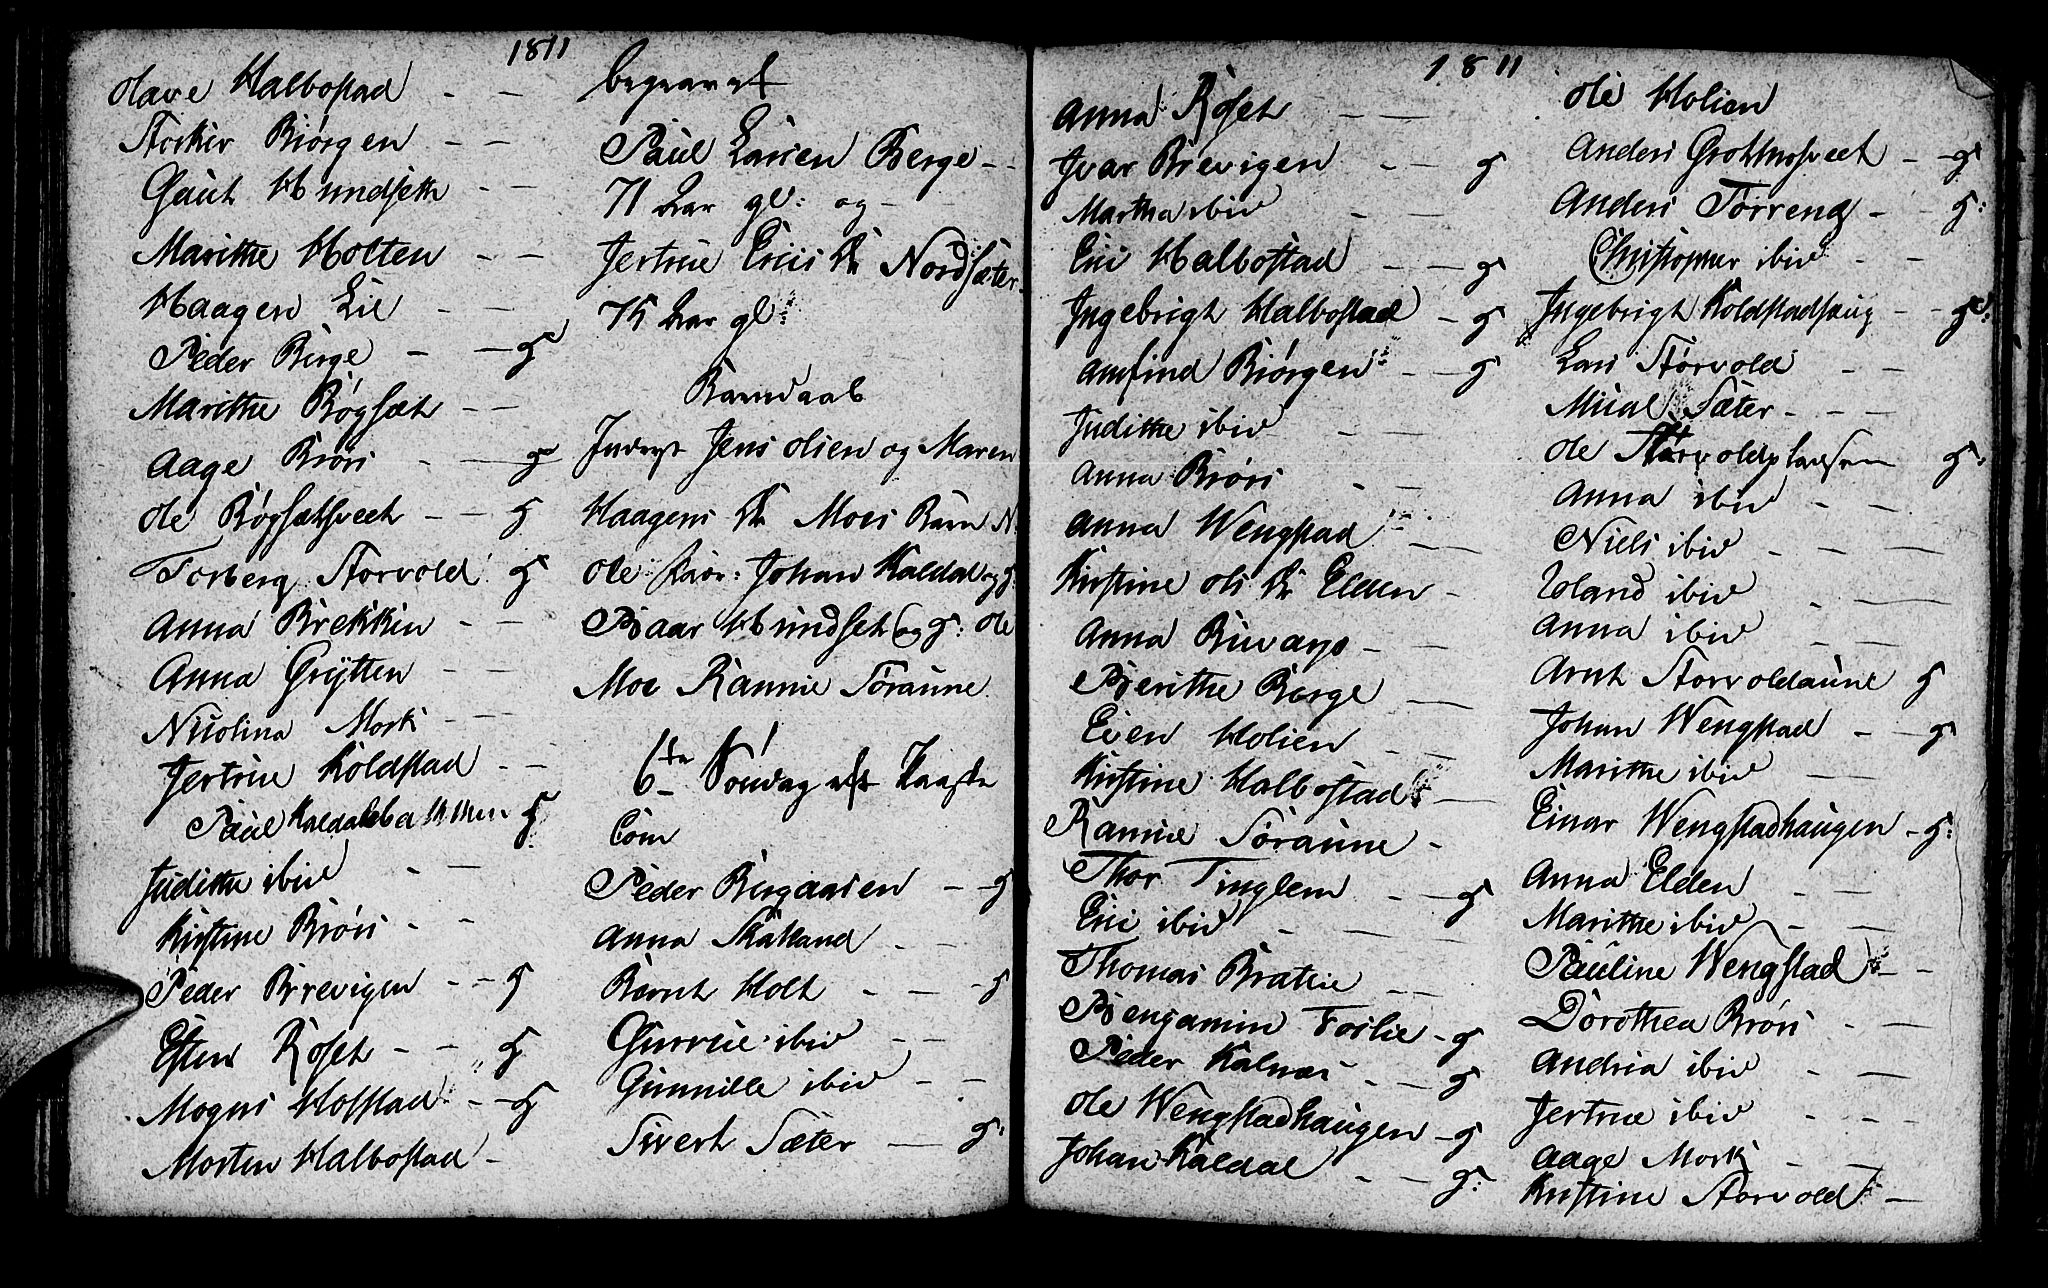 1811
Olave Halbostad - -
Storker Biørgen - -
Gaut Hundseth - -
Marithe Holten - -
Haagen Lie - -
Peder Berge - - g
Marithe Røgsæt - -
Aage Brørs - - g
Ole Røgsætsveet - - g
Torberg Storvold g
Anna Brekken - -
Anna Grÿtten - -
Nicolina Mork - -
Jertrue Koldstad - -
Paul Kaldal g
Judithe ibid - -
Kirstine Brørs - -
Peder Brevigen - - g
Esten Roset - - g
Mogns Hofstad - - g
Morten Halbostad -
begravet
Paul Larsen Berge - -
71 Aar gl: og -
Jertrue Erics Dr Nordsæter -
75 Aar gl
Barndaab
Indøgt Jens Olsen og Maren
Haagens Dr Moes Barn N.
Ole Johan Kaldal og g:
Baar Hundset og g: Ole
Moe Rannie Søraune
6te Søndag eft Paaske
Com
Peder Bergaasen - - g
Anna Skakland - -
Bernt Holt - - g
Gurrue ibid - -
Gunnille ibid - -
Sivert Sæter - g:
1811
Anna Roset - -
Ivar Brevigen - - g
Martha ibid - -
Eric Halbostad - - g
Ingebrigt Halbostad - g
Arnfind Biørgen - - g
Judithe ibid - -
Anna Brørs - -
Anna Wengstad - -
Kirstine Ols Dr Elden -
Anna - -
Berithe Berge - -
Even Holien - -
Kirstine Halbostad -
Rannie Søraune -
Thor Tinglem - - g
Eric ibid - -
Thomas Brattie - -
Bengjamin Foslie - g
Peder Kalnæs - - g
Ole Wengstadhaugen - g
Johan Kaldal - - g:
Ole Holien
Anders Grothusveet - - g
Anders Tørreng - - g:
Christopher ibid - -
Ingebrigt Koldstadhaug - - g:
Lars Størvold - -
Micael Sæter - - -
Ole Storvoldpladsen g:
Anna ibid - -
Niels ibid - - -
Roland ibid - -
Anna ibid - -
Arnt Storvoldaune g
Johan Wengstad - - g
Marithe ibid - -
Einar Wengstadhaugen - g:
Anna Elden - -
Marithe ibid - -
Pauline Wengstad - -
Dorothea Brørs - -
Andrea ibid - -
Jertrue ibid - -
Aage Mork - -
Kirstine Storvold -